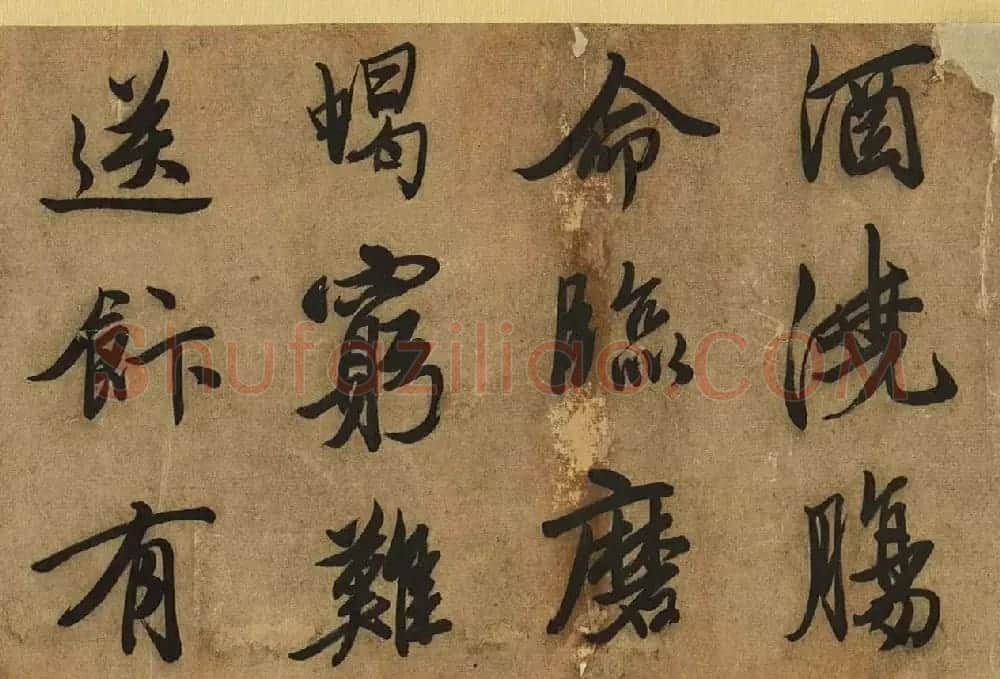 酒澆腸
命臨磨
蝎窮難
送餘有
Shufaziliao.COM